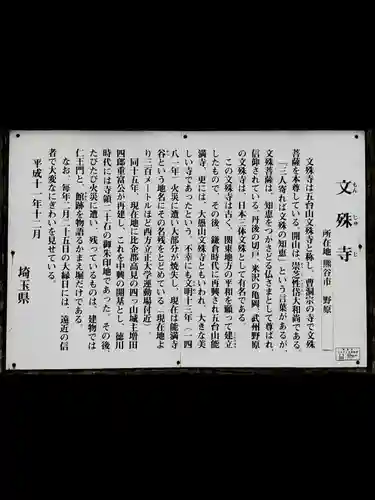 文殊寺
もん じゅ じ
所在地 熊谷市 野原
文殊寺は五台山文殊寺と称し、曹洞宗の寺で文殊
菩薩を本尊としている。開山は、崇芝性岱大和尚である。
「三人寄れば文殊の知恵」という言葉があるが、
文殊菩薩は、知恵をつかさどる仏さまとして尊ばれ、
信仰されている。丹後の切戸、米沢の亀岡、武州野原
の文殊寺は、日本三体文殊として有名である。
この文殊寺は古く、関東地方の平和を願って建立
したもので、その後、鎌倉時代に再興され五台山能
満寺、更には、大愚山文殊寺ともいわれ、大きな美
しい寺であったという。不幸にも文明十三年(一四
八一年)火災に遭い大部分が焼失し、現在は能満寺
谷という地名にその名残をとどめている(現在地よ
り三百メートルほど西方立正大学運動場付近)。
同十五年、現在地に比企郡高見の四ッ山城主増田
四郎重富公が再建し、これを中興の開基とし、徳川
時代には寺領二十石の御朱印地であった。その後、
たびたび火災に遭い、残っているものは、建物では
仁王門と、館跡を物語るかまえ堀だけである。
なお、毎年二月二十五日の大縁日には、遠近の信
者で大変なにぎわいを見せている。
平成十一年十二月
埼玉県